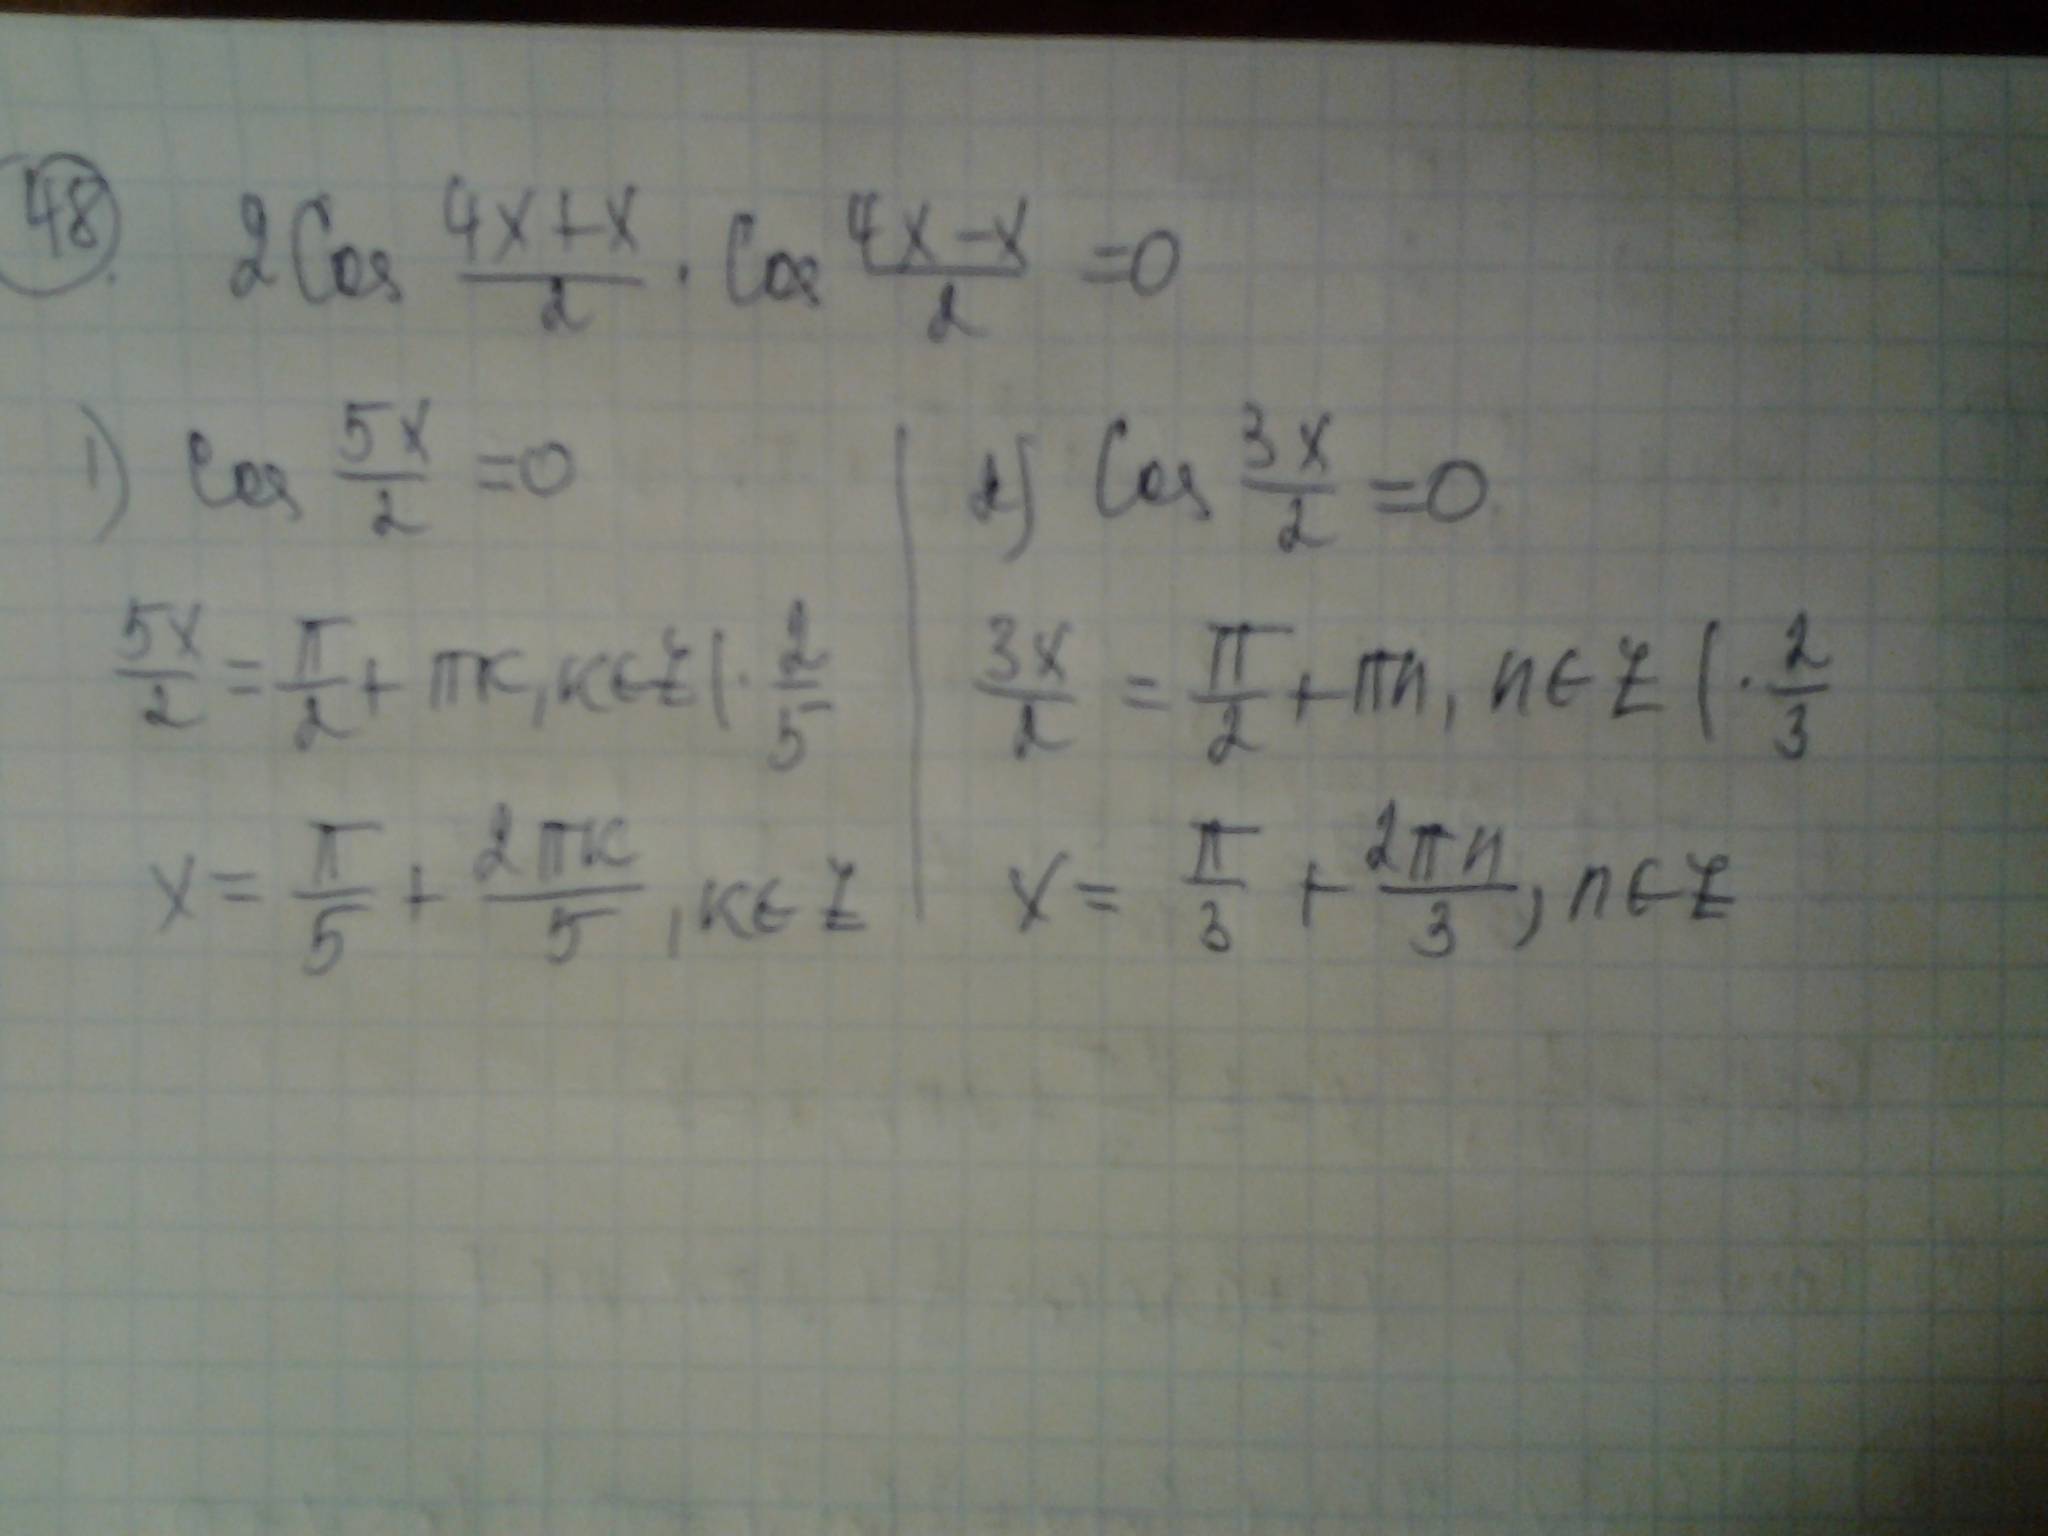 48. 2Cos (4x+x)/2 · Cos (4x-x)/2 =0
1) Cos 5x/2 =0
5x/2 = π/2 + πк, к∈Z |· 2/5
x= π/5 + 2πк/5, к∈Z
2) Cos 3x/2 =0
3x/2 = π/2 + πn, n∈Z |· 2/3
x= π/3 + 2πn/3, n∈Z